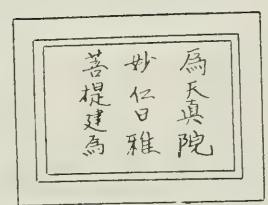 爲天真院
妙仁日雅
菩提建為